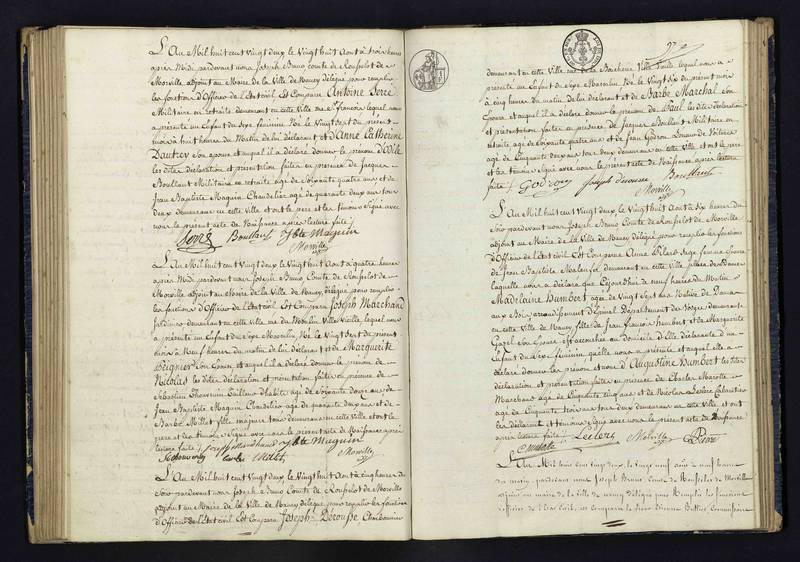 L'An Mil huit cent vingt deux le Vingt huit Aout à trois heures
après Midi pardevant nous Joseph Bruno comte de Rousselot de
Morville adjoint au Maire de la Ville de Nancy délégué pour remplir
les fonctions d'Officier de l'Etat civil Est Comparu Antoine Serre
Militaire en retraite demeurant en cette Ville rue St François lequel nous
a présenté un Enfant du sexe féminin Né le Vingt sept du présent
mois à huit heures du Matin de lui déclarant et d'Anne Catherine
son épouse et auquel il a déclaré donner le prénom d'Odile
les dites déclaration et présentation faites en présence de Jacques
Boullant Militaire en retraite agé de Soixante quatre ans et de
Jean Baptiste Maguin Chandelier agé de quarante deux ans tous
deux demeurans en cette ville et ont le père et les témoins Signé avec
nous le présent acte de Naissance après lecture faite
Serre Boullant JBte Maguin
Morville
L'An Mil huit cent Vingt deux le Vingt huit Aout à quatre heures
après Midi pardevant nous Joseph Bruno Comte de Rousselot de
Morville adjoint au Maire de la Ville de Nancy délégué pour remplir
les fonctions d'Officier de l'Etat civil Est Comparu Joseph Marchand
Jardinier demeurant en cette ville rue du Moulin Ville Vieille, lequel nous
a présenté un Enfant du Sexe Masculin Né le Vingt sept du présent
mois à Neuf heures du matin de lui déclarant et de Marguerite
son Epouse et auquel il a déclaré donner le prénom de
Nicolas les dites déclaration et présentation faites en présence de
Sébastien Tailleur d'habits agé de Soixante douze ans de
Jean Baptiste Maguin Chandelier agé de quarante deux ans et de
Barbe Millet fille majeure tous demeurans en cette ville et ont le
père et les témoins Signé avec nous le présent acte de Naissance après
lecture faite Joseph Marchand JBte Maguin
Morville
L'An Mil huit cent Vingt deux le Vingt huit Aout à cinq heures du
Soir pardevant nous Joseph Bruno Comte de Rousselot de Morville
adjoint au Maire de la Ville de Nancy délégué pour remplir les fonctions
d'Officier de l'Etat civil Est Comparu Joseph Derousse Charbonnier
demeurant en cette Ville rue de la Ville lequel nous a
présenté un Enfant du Sexe Masculin Né le Vingt six du présent mois
à cinq heures du matin de lui déclarant et de Barbe Marchal son
Epouse et auquel il a déclaré donner le prénom de Paul les dites déclaration
et présentation faites en présence de Jacques Boullant Militaire en
retraite agé de Soixante quatre ans et de Jean Godron Loueur de Voitures
agé de Cinquante deux ans tous deux demeurans en cette Ville et ont le père
et les témoins Signé avec nous le présent acte de Naissance après lecture
faite Godron Joseph Derousse Boullant
Morville
L'An Mil huit cent Vingt deux le Vingt huit Aout à six heures du
Soir pardevant nous Joseph Bruno Comte de Rousselot de Morville
adjoint au Maire de la Ville de Nancy délégué pour remplir les fonctions
d'Officier de l'Etat civil Est Comparue Anne Sage femme Epouse
de Jean Baptiste demeurant en cette ville place
laquelle nous a déclaré que Cejourd'hui de neuf heures du Matin
Madelaine Humbert agée de Vingt Sept ans Native de
aux Bois arrondissement d'Epinal Département des Vosges demeurant
en cette Ville de Nancy fille de Jean François Humbert et de Marguerite
son Epouse est accouchée au domicile d'Elle déclarante d'un
Enfant du Sexe féminin quelle nous a présenté et auquel elle a
déclaré donner les prénom et nom d'Augustine Humbert les dites
déclaration et présentation faites en présence de Charles
Marchand agé de Cinquante cinq ans et de Nicolas Leclerc
agé de Cinquante trois ans tous deux demeurans en cette Ville et ont
les déclarant et témoins Signé avec nous le présent acte de Naissance
après lecture faite Leclerc Morville
L'An Mil huit cent vingt deux, le vingt neuf aout à neuf heures
du matin pardevant nous Joseph Bruno Comte de Rousselot de Morville
adjoint au maire de la ville de Nancy délégué pour remplir les fonctions
d'officier de l'Etat Civil, est comparu